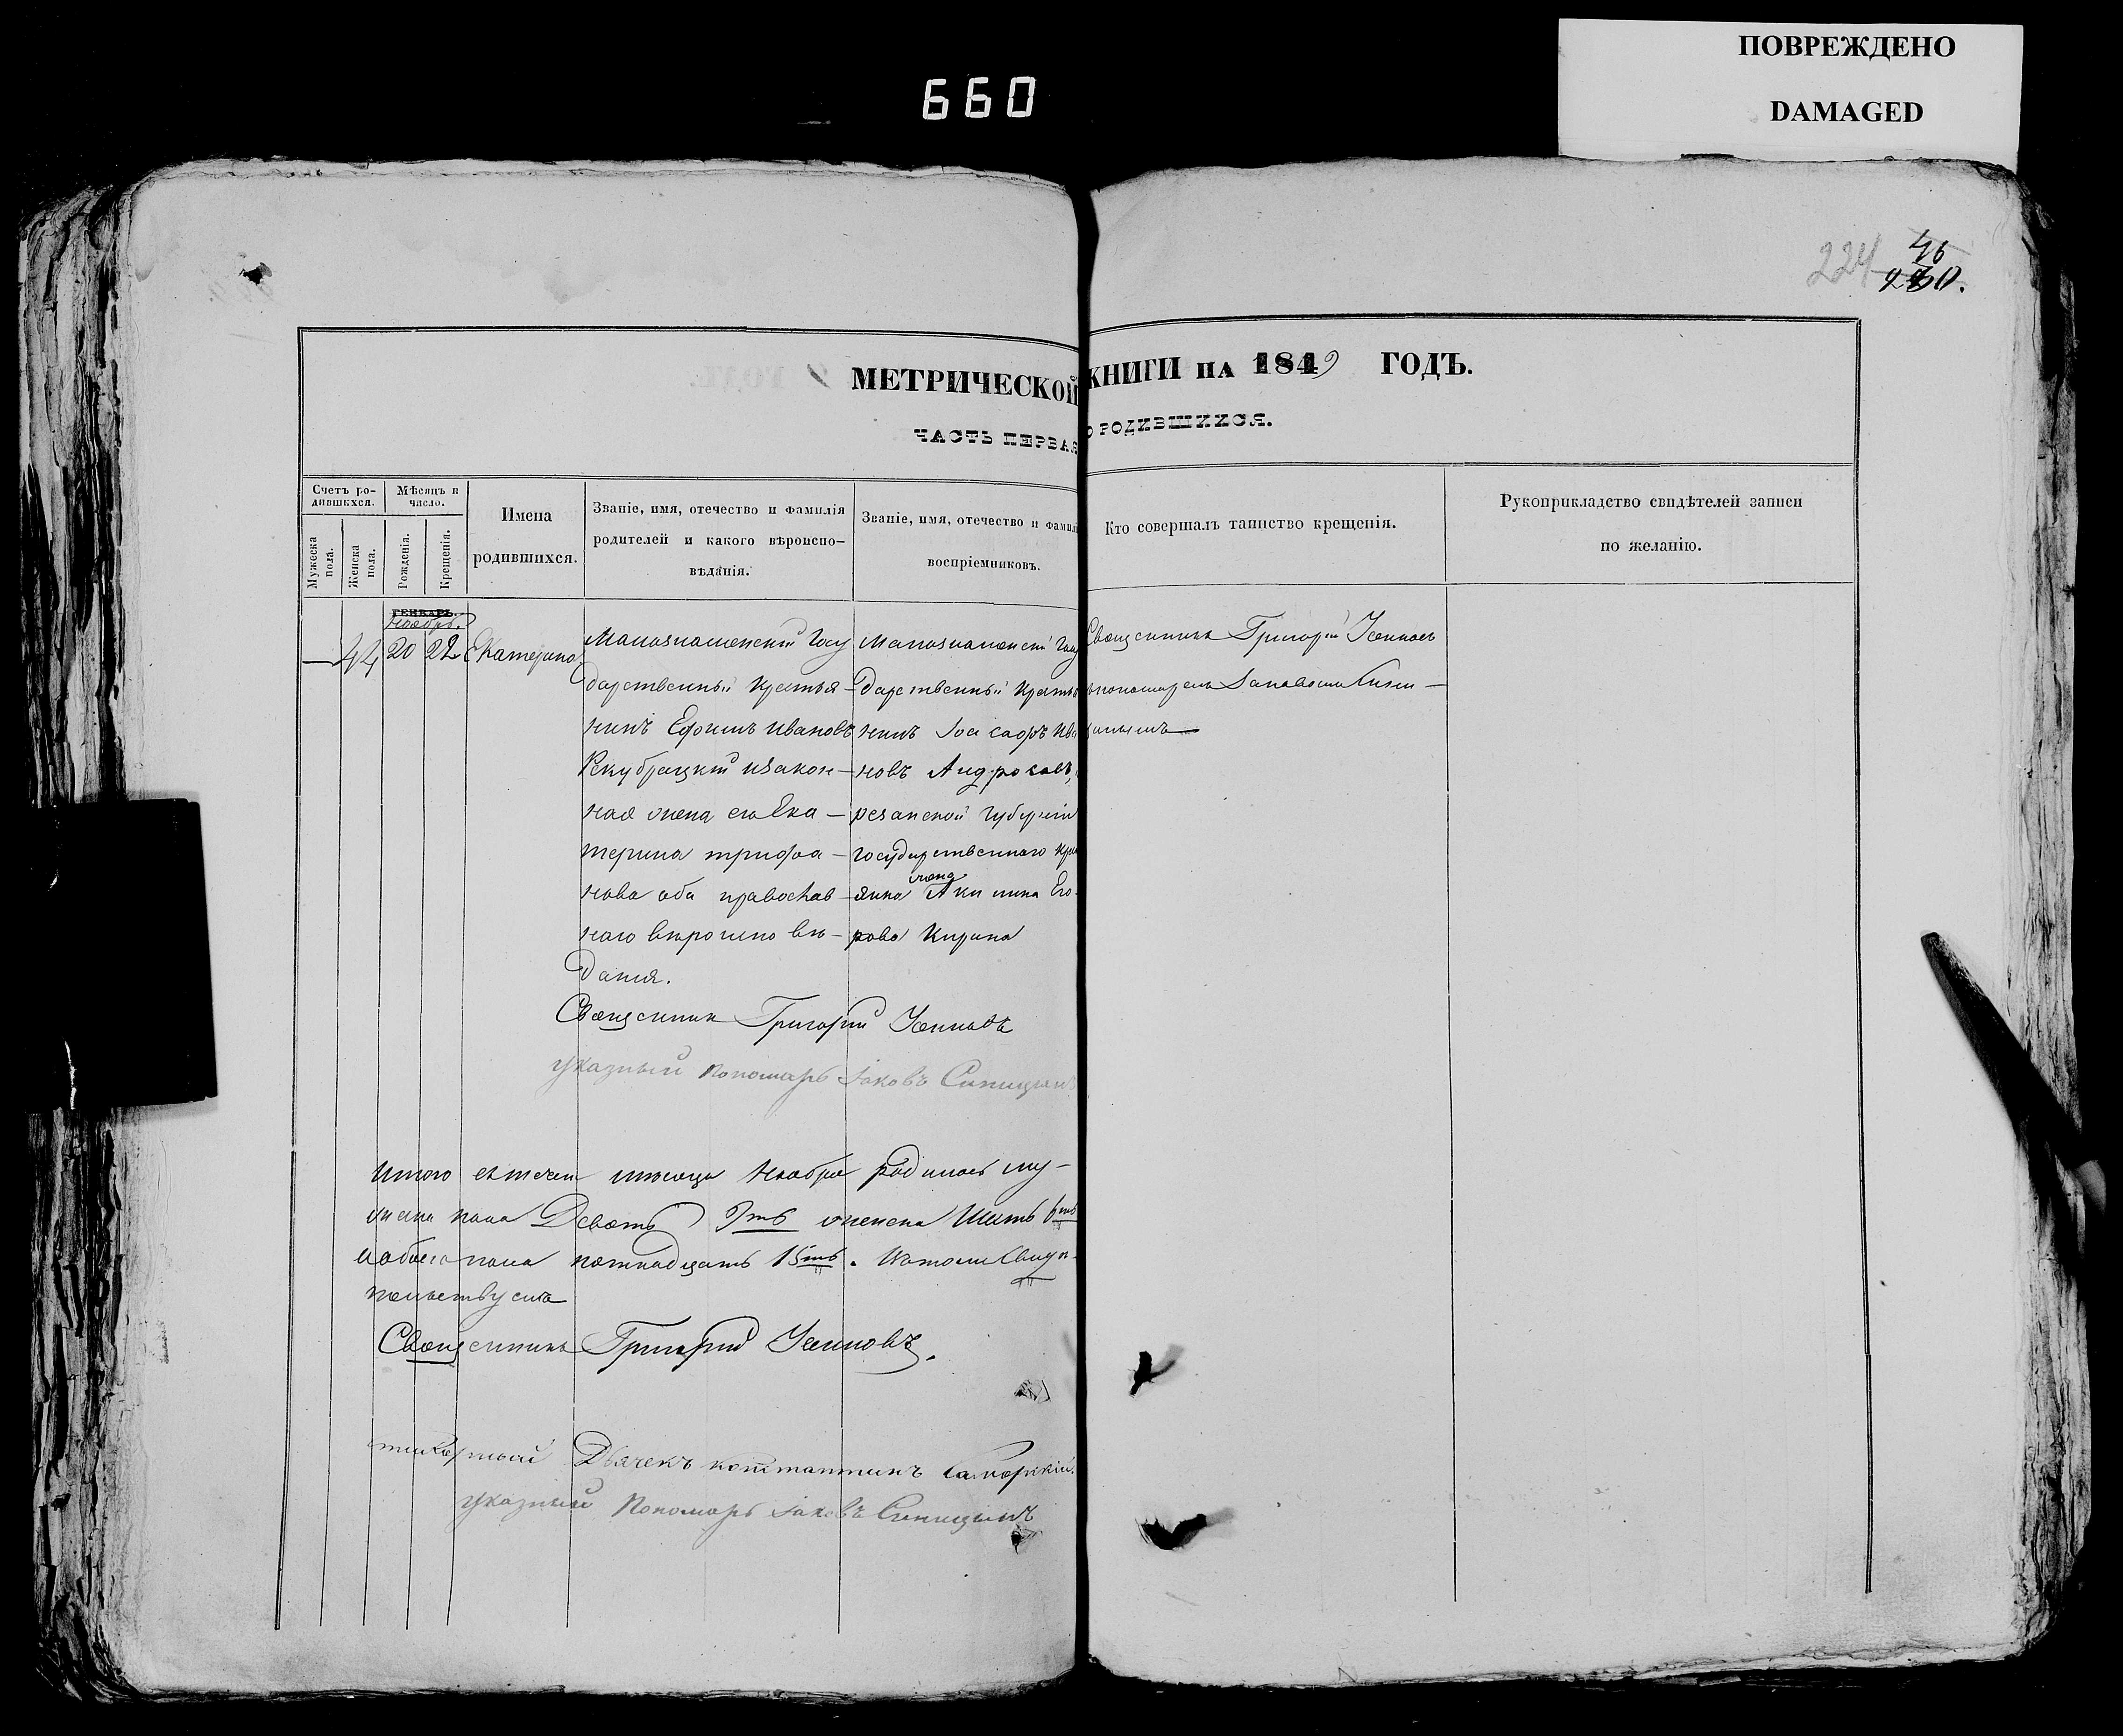 ПОВРЕЖДЕНО
DAMAGED
660
224 46
230.
МЕТРИЧЕСКОЙ КНИГИ НА 1849 ГОДЪ.
ЧАСТЬ ПЕРВАЯ О РОДИВШИХСЯ.
Счетъ ро-
дившихся.
Мужеска пола.
Женска пола.
Мѣсяцъ и
число.
Рожденія.
Крещенія.
Имена
родившихся.
Званіе, имя, отечество и фамилія
родителей и какого вѣроиспо-
вѣданія.
Званіе, имя, отечество и фамилі
воспріемниковъ.
Кто совершалъ таинство крещенія.
Рукоприкладство свидѣтелей записи
по желанію.
ГЕНВАРЬ.
Ноябрь.
44 20 22 Екатерина
Малознаменский Госу
дарственный Крестья-
нинъ Ефимъ Ивановъ
изакон-
ная жена его Ека-
терина трифоа-
нова оба православ-
наго вѣроиспо вѣ-
дания.
Малознаменский Госу
дарственный Крестья
нинъ Ива
новъ Андросовъ,
резанской Губернии
государственного Кре
жена
янина Акилина Его-
рова Кирина
Священникъ Григорий
спономаремъ Іаковомъ Сини-
цынымъ
Священник Григорий
указный Пономарь Іаковъ Синицынъ
Итого въ течении месяца Ноября родилось му-
жска пола Девять 9ть женска Шесть 6ть
иобоего пола пятнадцать 15ть. В томъ Свидѣ-
тельствуемъ
Священникъ Григорий
Дьячекъ константинъ
указный Пономарь Іаковъ Синицынъ